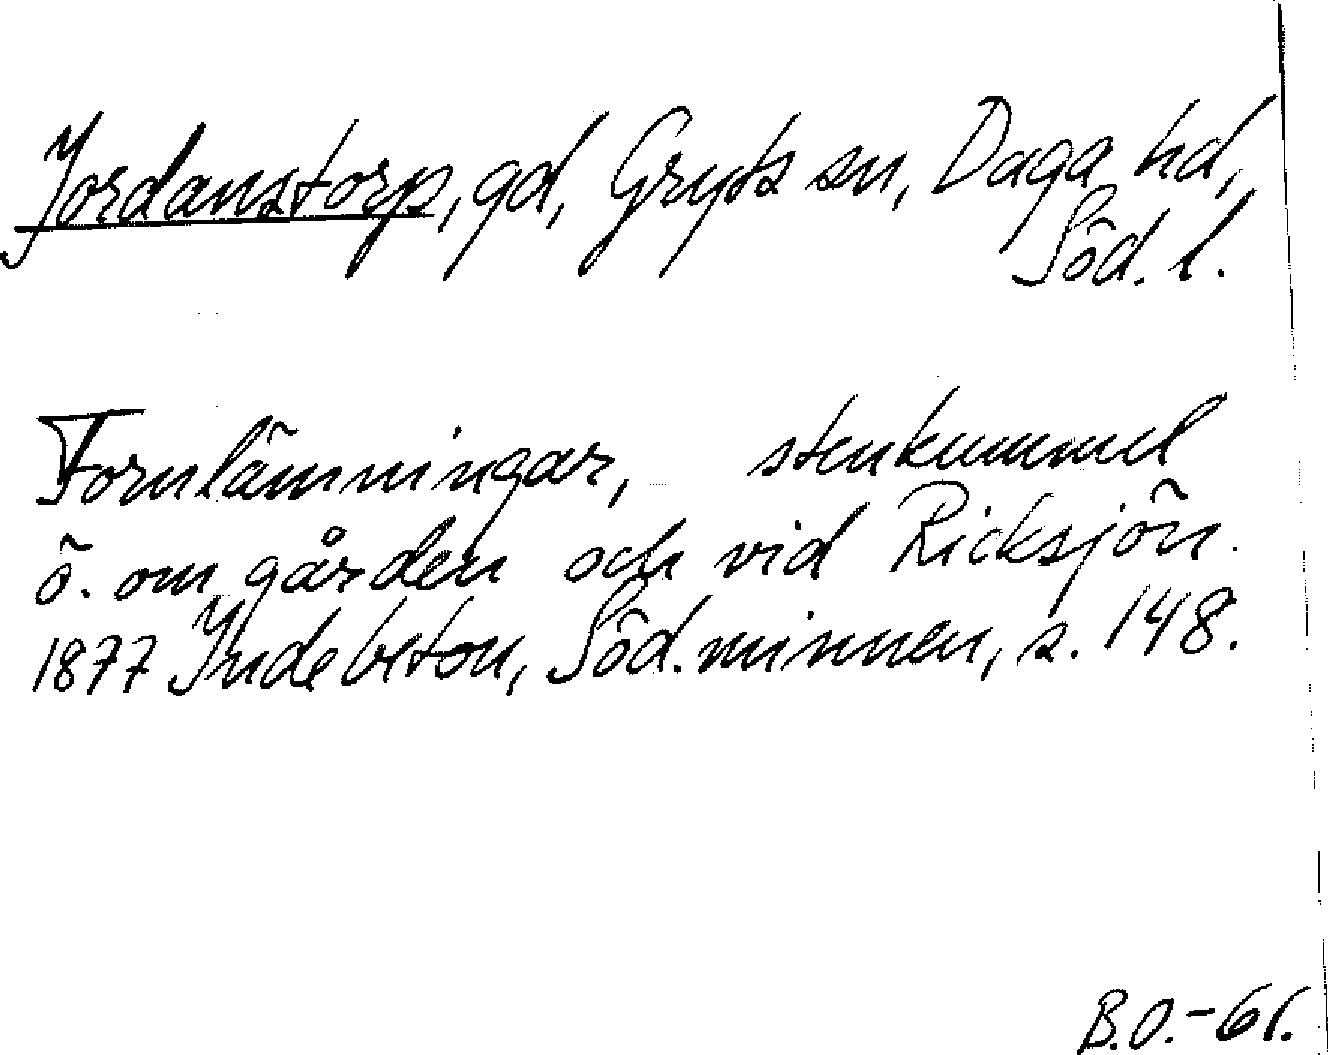 Jordanstorp, gd, Gryts sn, Daga hd,
Söd. l.
Fornlämningar, stenkummel
ö. om gården och vid Ricksjön.
1877 Indebetou, Söd. minnen, s. 148.
B.O.-61.